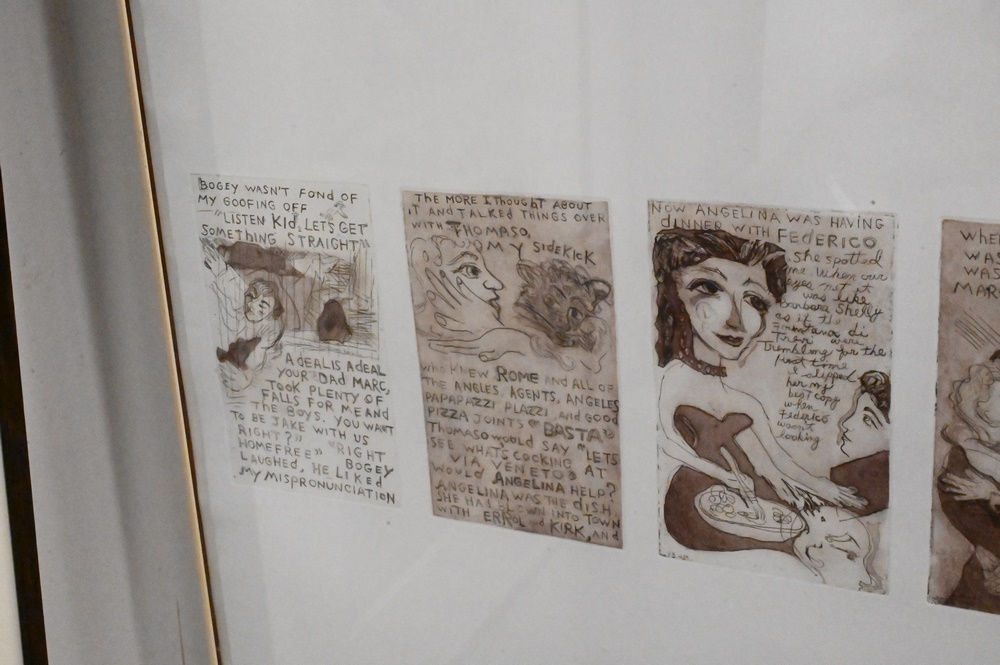 BOGEY WASN'T FOND OF
MY GOOFING OFF
"LISTEN KID, LET'S GET
SOMETHING STRAIGHT"
A DEAL IS A DEAL
YOUR DAD MARC,
TOOK PLENTY OF
FALLS FOR ME AND
THE BOYS. YOU WANT
TO BE JAKE WITH US
RIGHT?" "RIGHT
HOMEFREE" BOGEY
LAUGHED, HE LIKED
MY MISPRONUNCIATION
THE MORE I THOUGHT ABOUT
IT AND TALKED THINGS OVER
WITH THOMASO,
MY SIDEKICK
WHO KNEW ROME AND ALL OF
THE ANGLES, AGENTS, ANGELS
PAPAPAZZI PLAZZI AND GOOD
PIZZA JOINTS "BASTA"
THOMASO WOULD SAY "LETS
SEE WHATS COOKING AT
VIA VENETO"
WOULD ANGELINA HELP?
ANGELINA WAS THE DISH
SHE HAD BLOWN INTO TOWN
WITH ERROL and KIRK, AND
NOW ANGELINA WAS HAVING
DINNER WITH FEDERICO
She spotted
me. When our
eyes met it
was like
Barbara Shelly
as if the
Fontana di
Trevi were
Trembling for the
first time
I slipped
her my
best copy
when
Federico
wasn't
looking
WHE
WAS
WAS
MAR